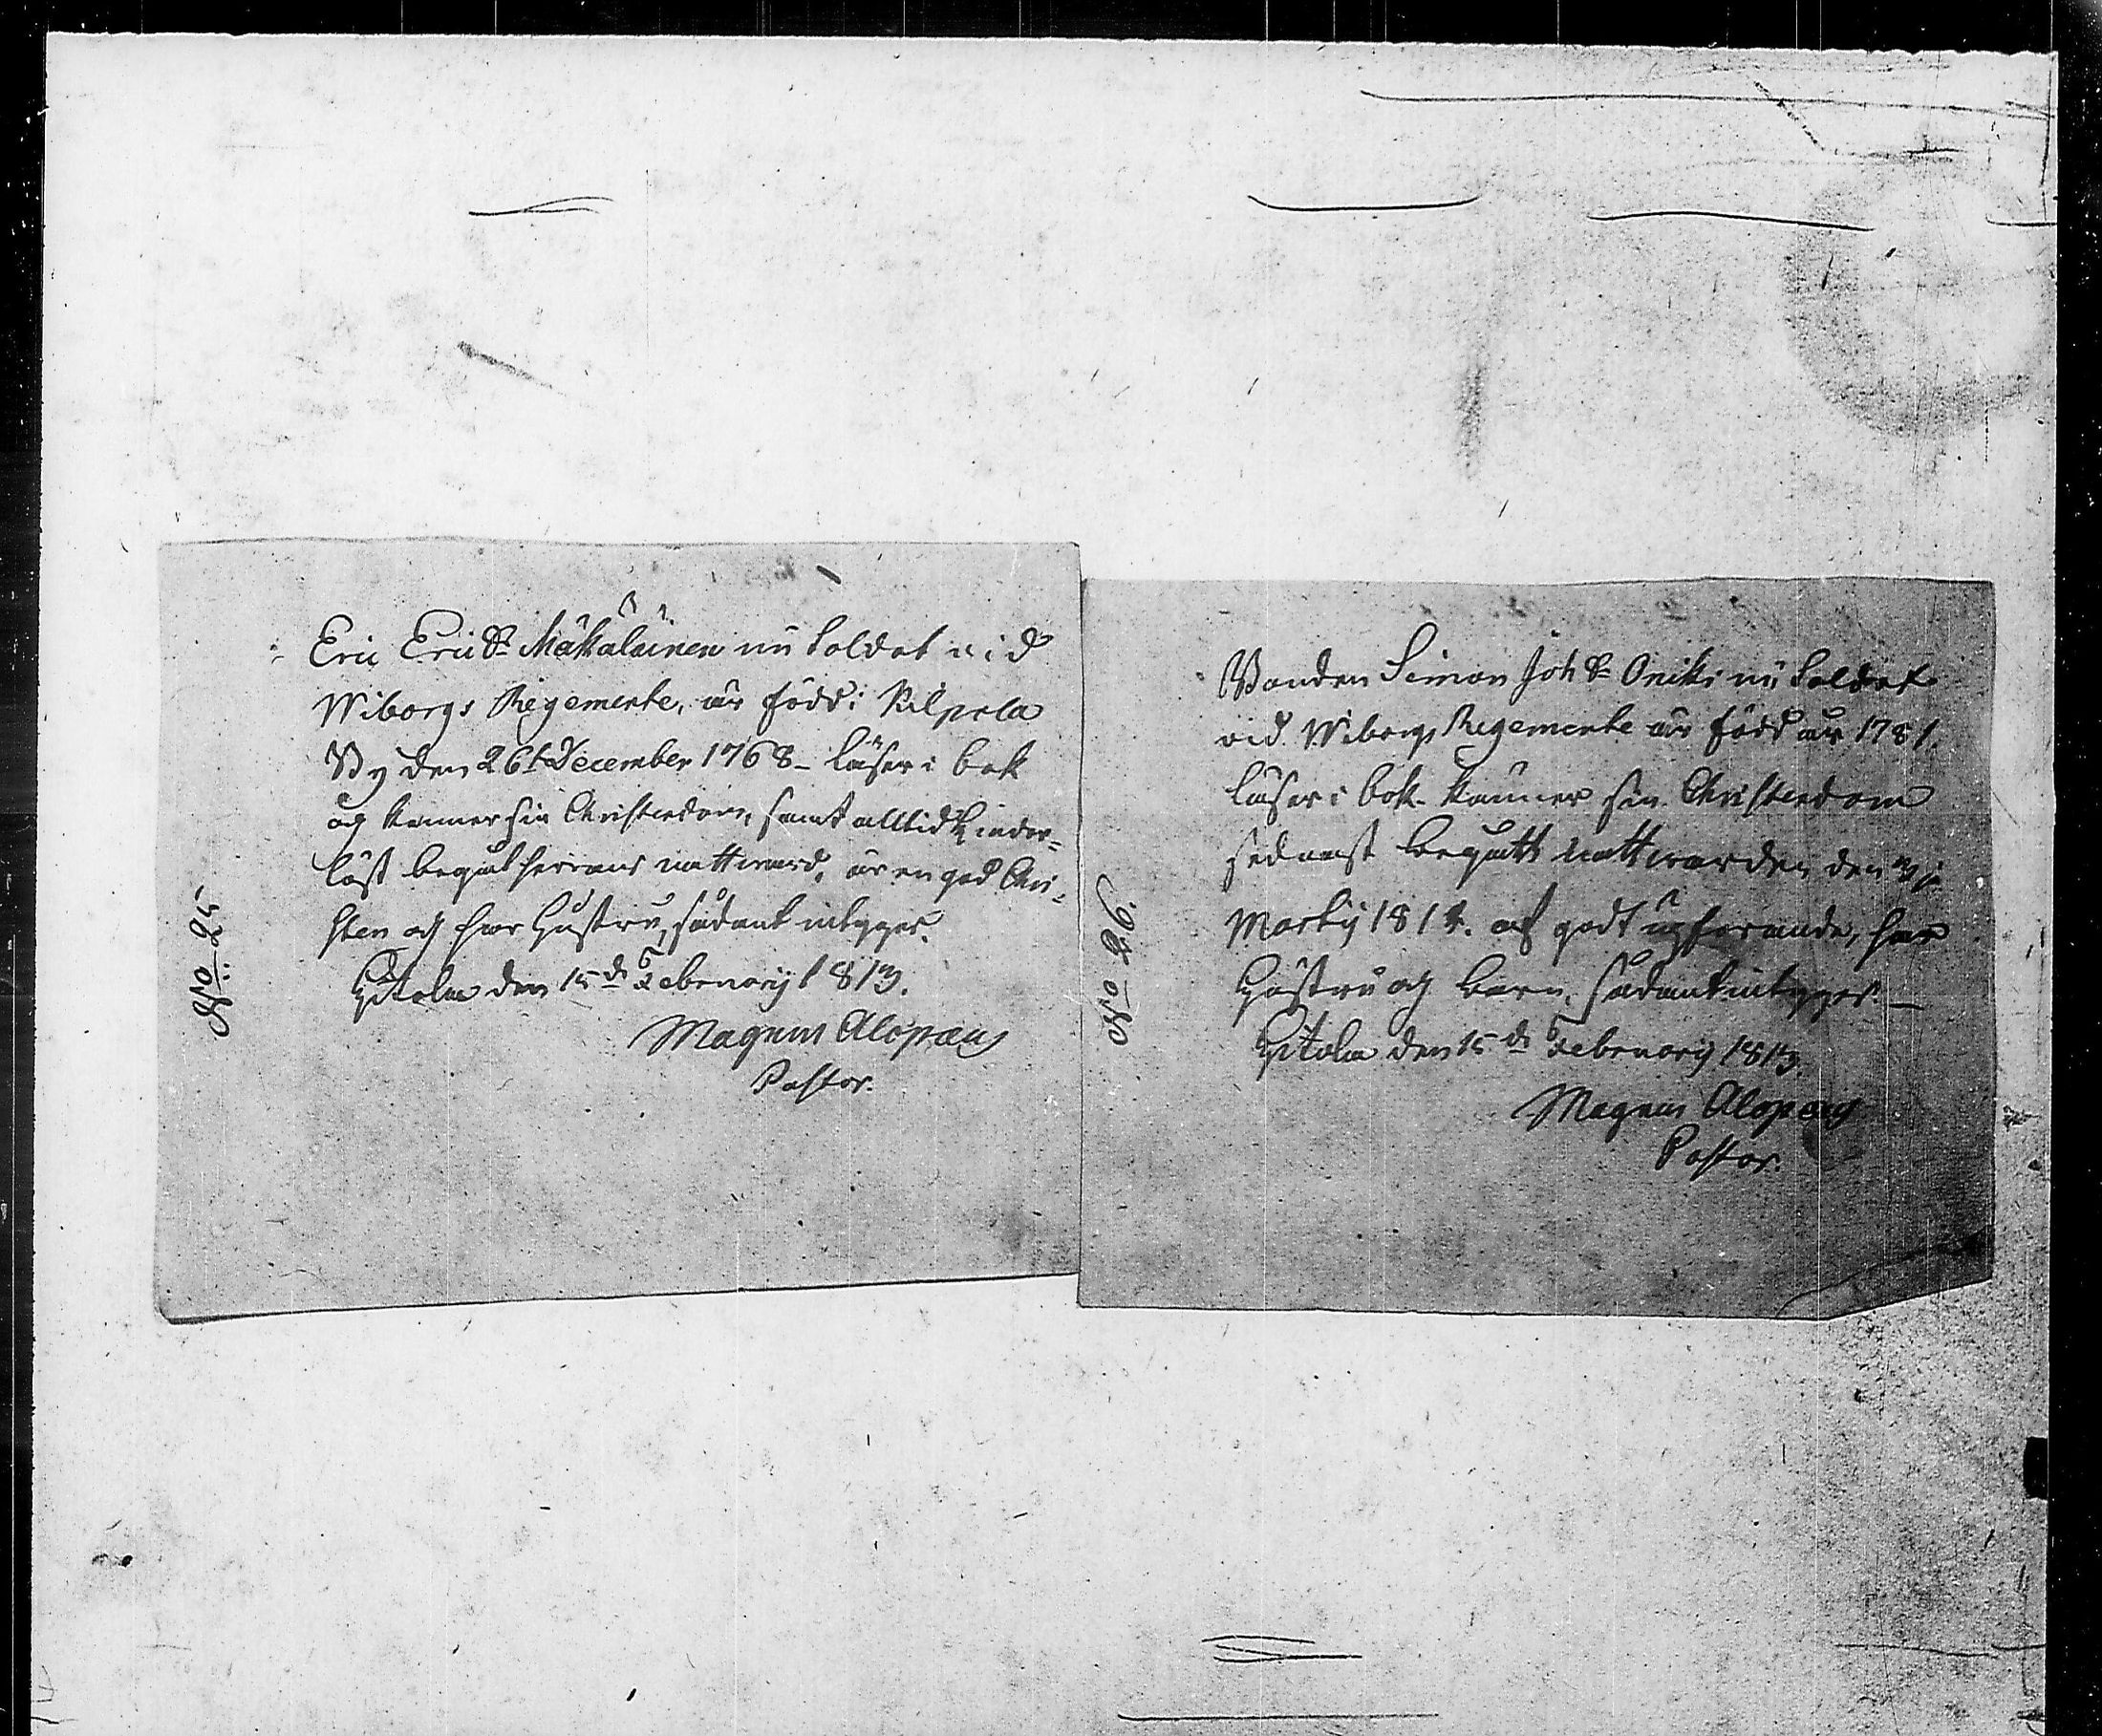 No: 25
Eric Erics: Mäkäläinen nu Soldat vid
Wiborgs Regemente, är född i Kilpola
By den 26t December 1768 – läser i bok
och kenner sin Christendom, samt alltid hinder-
löst begått herrans nattward, är en god Chri-
sten och har Hustru, sådant intygas.
Hitola den 15de Februarij 1813.
Magnus Alopæus
Pastor.
No 26.
Bonden Simon Joh S: Oniki nu Soldat
vid Wiborgs Regemente är född år 1781.
läser i bok. känner sin Christendom
sednast begått nattwarden den
Martij 1812. af godt uppförande, har
Hustru och barn, sådant intygas. –
Hitola den 15de Februarij 1813.
Magnus Alopæus
Pastor.